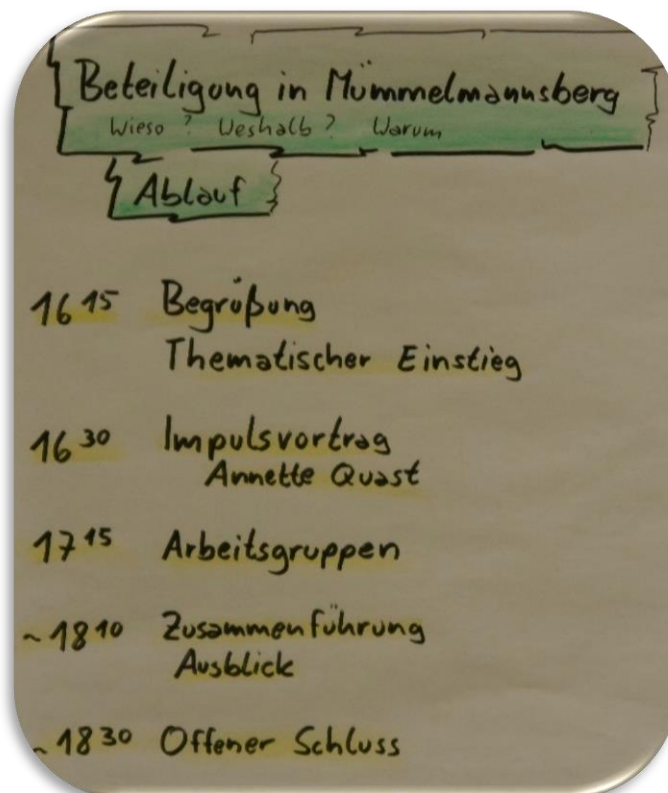 Beteiligung in Mümmelmannsberg
Wieso? Weshalb? Warum
Ablauf
16 15 Begrüßung
Thematischer Einstieg
16 30 Impulsvortrag
Annette Quast
17 15 Arbeitsgruppen
~ 18 10 Zusammenführung
Ausblick
~ 18 30 Offener Schluss